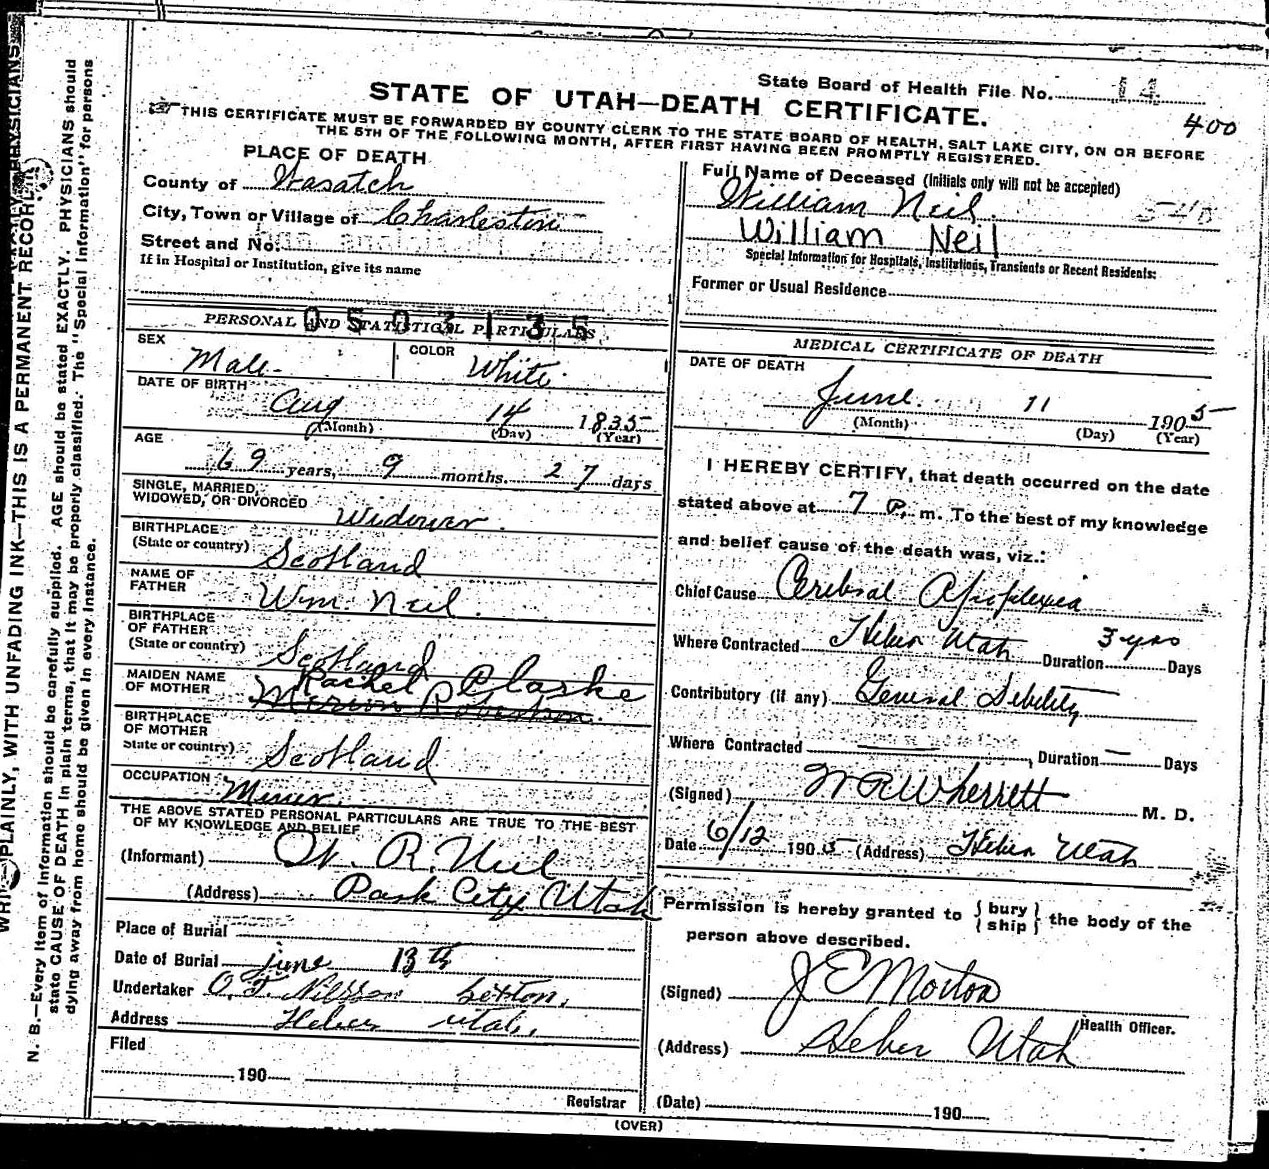 State Board of Health File No. 14
STATE OF UTAH—DEATH CERTIFICATE.
400
THIS CERTIFICATE MUST BE FORWARDED BY COUNTY CLERK TO THE STATE BOARD OF HEALTH, SALT LAKE CITY, ON OR BEFORE
THE 5TH OF THE FOLLOWING MONTH, AFTER FIRST HAVING BEEN PROMPTLY REGISTERED.
PLACE OF DEATH
County of Wasatch
City, Town or Village of Charleston
Street and No.
If in Hospital or Institution, give its name
Full Name of Deceased (Initials only will not be accepted)
William Neil.
540
William Neil
Special Information for Hospitals, Institutions, Transients or Recent Residents:
Former or Usual Residence
PERSONAL AND STATISTICAL PARTICULARS
0503135
SEX
Male
COLOR
White
DATE OF BIRTH
Aug 14 1835
(Month) (Day) (Year)
AGE
69 years, 9 months. 27 days
SINGLE, MARRIED,
WIDOWED, OR DIVORCED
Widower.
BIRTHPLACE
(State or country)
Scotland
NAME OF
FATHER
Wm. Neil.
BIRTHPLACE
OF FATHER
(State or country)
Scotland
MAIDEN NAME
OF MOTHER
Rachel Clarke
Robertson.
BIRTHPLACE
OF MOTHER
State or country)
Scotland
OCCUPATION
Miner.
THE ABOVE STATED PERSONAL PARTICULARS ARE TRUE TO THE BEST
OF MY KNOWLEDGE AND BELIEF
(Informant) W. R. Neil
(Address) Park City Utah
Place of Burial
Date of Burial June 13th
Undertaker O. F. Nilsson Sexton,
Address Heber Utah.
Filed
190
Registrar
MEDICAL CERTIFICATE OF DEATH
DATE OF DEATH
June. 11 1905
(Month) (Day) (Year)
I HEREBY CERTIFY, that death occurred on the date
stated above at 7 P. m. To the best of my knowledge
and belief cause of the death was, viz.:
Chief Cause Cerebral Apoplexia
Where Contracted Heber Utah Duration 3 yrs Days
Contributory (if any) General Debility
Where Contracted —, Duration — Days
(Signed) W R Wherrett M. D.
Date 6/12 1905 (Address) Heber Utah
Permission is hereby granted to {bury} the body of the
{ship}
person above described.
(Signed) J E Morton
Health Officer.
(Address) Heber Utah
(Date) 190
(OVER)
WRITE PLAINLY, WITH UNFADING INK—THIS IS A PERMANENT RECORD.
N. B.—Every item of information should be carefully supplied. AGE should be stated EXACTLY. PHYSICIANS should
state CAUSE OF DEATH in plain terms, that it may be properly classified. The "Special Information" for persons
dying away from home should be given in every instance.